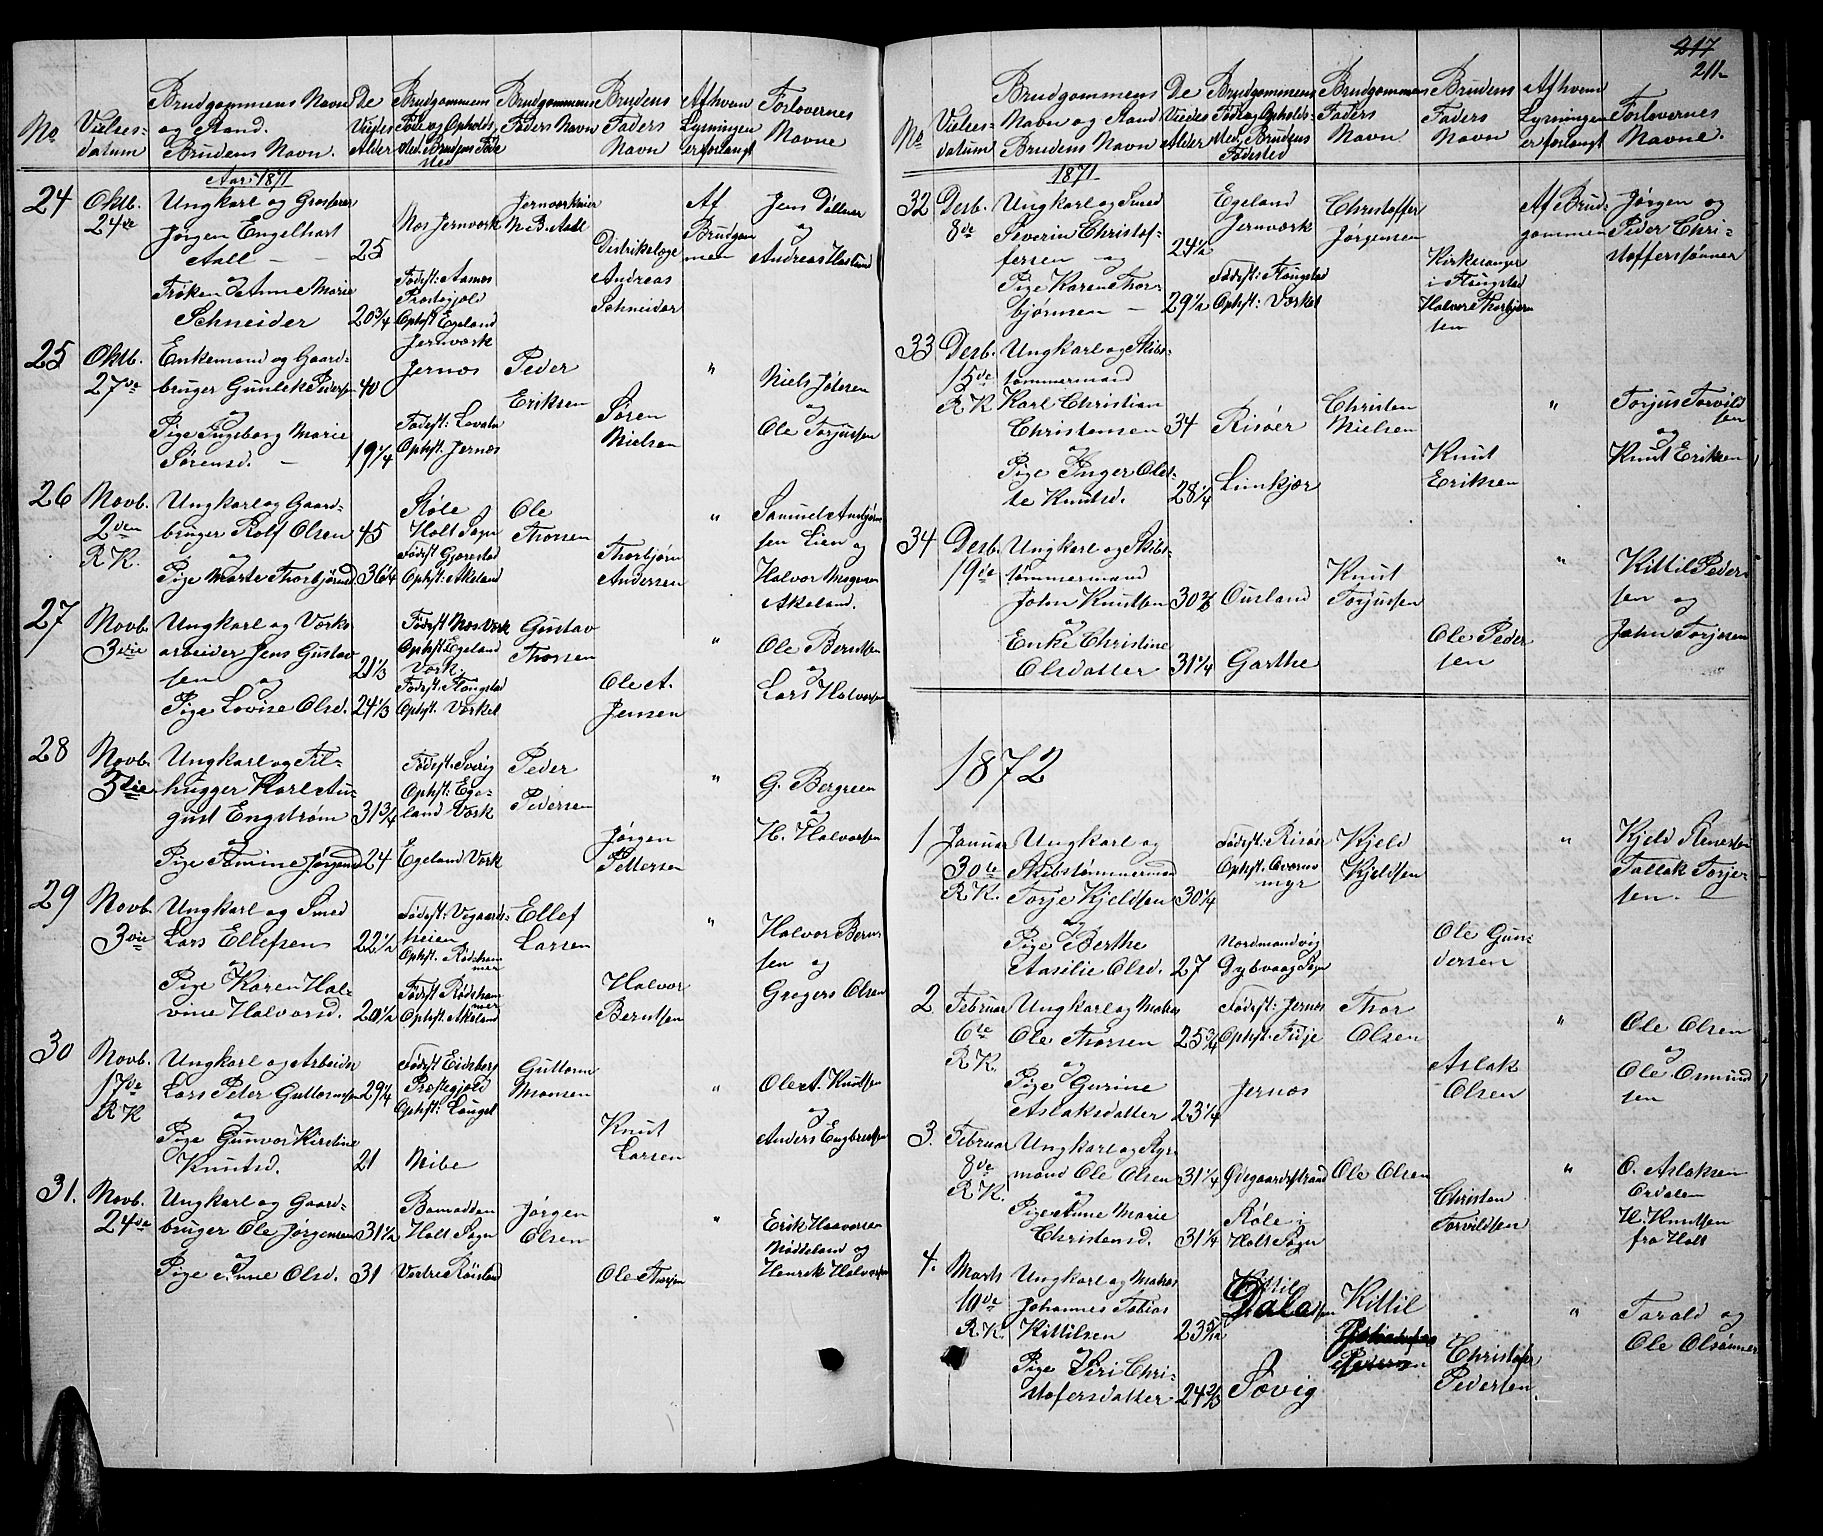 217
211
No
Vielses-
datum
Brudgommens Navn
og Stand.
Brudens Navn.
De
Viedes
Alder
Brudgommens
Føde og Opholds
sted. Brudens Føde
sted
Brudgommens
Faders Navn
Brudens
Faders
Navn
Af hvem
Lysningen
er forlangt
Forlovernes
Navne
Aar: 1871
24 Oktb.
24de
Ungkarl og
Jørgen Engelhart
Aall — 25
og
Frøken Anne Marie
Schneider 20¾
Næs Jernværk
Prestegjeld
Ophst Egeland
Jernværk
N. B. Aall
Distriktslæge
Andreas
Schneider
Af
Brudgom
men
Jens
og
Andreas
25 Oktb.
27de
Enkemand og Gaard-
bruger Gunleke Pedersen 40
og
Pige Ingeborg Marie
Sørensd. — 19¼
Jernæs
Fødest:
Ophst. Jernæs
Peder
Eriksen
Søren
Nielsen
"
Niels
og
Ole Torjussen
26 Novb.
2den
R.K.
Ungkarl og Gaard-
bruger Rolf Olsen 45
og
Pige Marte Thorbjørnsd 36¼
Støle
Holt Sogn
Fødest Gjerestad
Ophst. Akeland
Ole
Thorsen
Thorbjørn
Andersen
"
Samuel
sen Lien og
Halvor
Akeland.
27 Novb.
3die
Ungkarl og Værks
arbeider Jens Gustav
sen og 21⅓
Pige Lovise Olsd. 24⅓
Fødest Næs Værk
Ophst Egeland
Værk.
Fødest:
Ophst. Værket
Gustav
Thorsen
Ole A.
Jensen
"
Ole Berntsen
og
Lars Halvorsen
28 Novb.
3die
Ungkarl og Fil-
hugger Karl Au-
gust Engstrøm 31¾
og
Pige Tomine Jørgensd 24
Fødest.
Ophst: Ege-
land Værk
Egeland Værk
Peder
Pedersen
Jørgen
Pettersen
"
G. Bergreen
og
H. Halvorsen
29 Novb.
3die
Ungkarl og Smed
Lars Ellefsen 22½
og
Pige Karen Hal-
vine Halvorsd. 20½
Fødest: Vegaards-
heien
Ophst. Rødsham
mer
Fødest Rødsham
mer
Ophst: Akeland
Ellef
Larsen
Halvor
Berntsen
"
Halvor Bernt
sen og
Gregers Olsen
30 Novb.
17de
R.K
Ungkarl og Arbeider
Lars Peter Guttormsen 29¼
og
Pige Gunvor Kirstine
Knutsd. 21
Fødest Eidsberg
Præstegjeld
Ophst: Langel
Nibe
Guttorm
Monsen
Knut
Larsen
"
Ole A. Knutsen
og
Anders Engbretsen
31. Novb.
24de
Ungkarl og Gaard-
bruger Ole Jørgensen 31½
og
Pige Anne Olsd. 31
Holt Sogn
Vestre
Jørgen
Olsen
Ole
"
Erik Halvorsen
og
Henrik Halvorsen
No
Vielses-
datum
Brudgommens
Navn og Stand
Brudens Navn
De
Viedes
Alder
Brudgommens
Føde og Opholds-
sted, Brudens
Fødested
Brudgommens
Faders
Navn
Brudens
Faders
Navn
Af hvem
Lysningen
er forlangt
Forlovernes
Navne.
1871
32 Desb.
8de
Ungkarl og Smed
Severin Christof-
fersen — og 24½
Pige Karen Thor-
bjørnsen — 29½
Egeland
Jernværk
Fødest:
Ophst: Værket
Christoffer
Jørgensen
Kirkesanger
i
Halvor Thorbjørn
sen
Af Brud-
gommen
Jørgen og
Peder Chri-
stofferssønner
33 Desb.
15de
R.K
Ungkarl og Skibs-
tømmermand
Karl Christian
Christensen 34
og
Pige Inger Olet-
te Knutsd. 28¼
Risøer
Limkjær
Christen
Nielsen
Knut
Eriksen
"
Torjus Torvild
sen
og
Knut Eriksen
34 Desb.
19de
Ungkarl og Skibs-
tømmermand
John Knutsen 30⅔
og
Enke Christine
Olsdatter 31¼
Ousland
Garthe
Knut
Torjussen
Ole Peder
sen
"
Kittil Peder
sen og
John Torjusen
1872
1 Januar
30te
R.K.
Ungkarl og
Skibstømmermand
Torje Kjeldsen 30¼
og
Pige Berthe
Aasilie Olsd. 27
Fødest: Risør
Ophst:
myr
Nordmandvig
Dybvaag Sogn
Kjeld
Kjeldsen
Ole Gun-
dersen
"
Kjeld
Tallak Torje-
sen. —
2 Februar
6te
R.K.
Ungkarl og Matros
Ole Thorsen 25¾
og
Pige Gurine
Aslaksdatter 23¼
Fødest: Jernæs
Ophst.
Jernæs
Thor
Olsen
Aslak
Olsen
"
Ole Olsen
og
Ole Osmund
sen
3. Februar
8de
R.K.
Ungkarl og Styr
mand Ole Olsen 31¼
og
Pige Anne Marie
Christensd. 31¼
Ødegaardsstrand
Støle i
Holt Sogn
Ole Olsen
Christen
Torvildsen
"
O. Aslaksen
Ordalen
H. Knutsen
fra Holt
4. Marts
10de
R.K.
Ungkarl og Matros
Johannes Tobias
Kittilsen 23 5/12
og
Pige Siri Chri-
stofersdatter 24⅔
Dala
Søvig
Kittil
Christofer
Pedersen.
"
Tarald og
Ole Olsønner